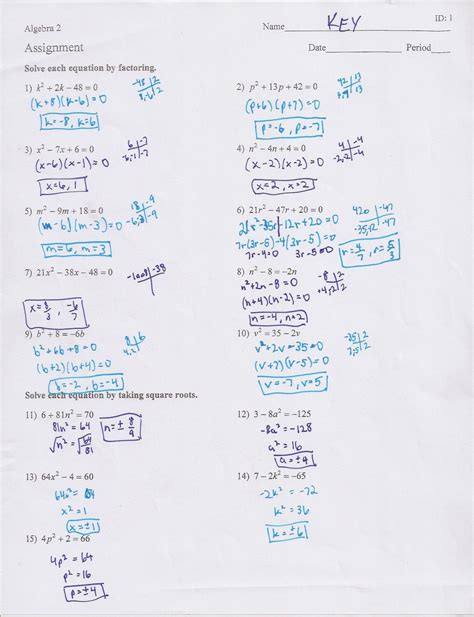 ID: 1
Algebra 2
Name KEY
Assignment
Date Period
Solve each equation by factoring.
1) k² + 2k − 48 = 0
-48 | 2
8,-6 | 2
(k+8)(k-6)=0
k=-8, k=6
2) p² + 13p + 42 = 0
42 | 13
(p+6)(p+7)=0
p=-6, p=-7
3) x² − 7x + 6 = 0
6 | -7
-6,-1 | -7
(x-6)(x-1)=0
x=6, 1
4) n² − 4n + 4 = 0
4 | -4
-2,-2 | -4
(x-2)(x-2)=0
x=2, x=2
5) m² − 9m + 18 = 0
18 | -9
-6,-3 | -9
(m-6)(m-3)=0
m=6, m=3
6) 21r² − 47r + 20 = 0
420 | -47
-35,-12 | -47
21r²-35r-12r+20=0
7r(3r-5)-4(3r-5)=0
7r-4=0 3r-5=0
r=4/7, r=5/3
7) 21x² − 38x − 48 = 0
-1008 | -38
x=8/3, -6/7
8) n² − 8 = −2n
-8 | 2
+4,-2 | 2
n²+2n-8=0
(n+4)(n-2)=0
n=-4, n=2
9) b² + 8 = −6b
8 | 6
4,2 |
b²+6b+8=0
(b+2)(b+4)=0
b=-2, b=-4
10) v² = 35 − 2v
-35 | 2
7,-5 | 2
v²+2v-35=0
(v+7)(v-5)=0
v=-7, v=5
Solve each equation by taking square roots.
11) 6 + 81n² = 70
81n² = 64
√n² = √64/81
n=± 8/9
12) 3 − 8a² = −125
-8a² = -128
a² = 16
a=±4
13) 64x² − 4 = 60
64x² = 64
x² = 1
x=±1
14) 7 − 2k² = −65
-2k² = -72
k² = 36
k=±6
15) 4p² + 2 = 66
4p² = 64
p² = 16
p=±4